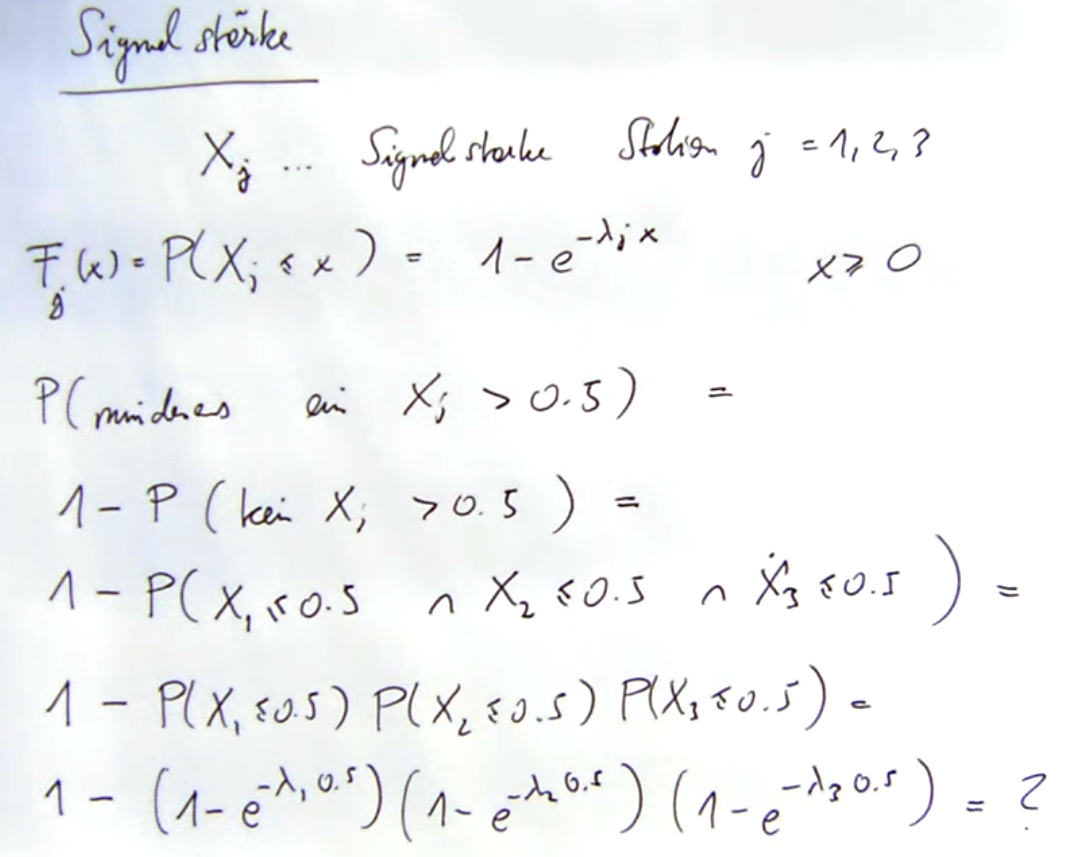 Signalstärke
X_j ... Signalstärke Station j = 1, 2, 3
F_j(x) = P(X_j ≤ x) = 1 - e^{-λ_j x} x ≥ 0
P(mindenes ein X_j > 0.5) =
1 - P(kein X_j > 0.5) =
1 - P(X_1 ≤ 0.5 ∩ X_2 ≤ 0.5 ∩ X_3 ≤ 0.5) =
1 - P(X_1 ≤ 0.5) P(X_2 ≤ 0.5) P(X_3 ≤ 0.5) =
1 - (1 - e^{-λ_1 0.5})(1 - e^{-λ_2 0.5})(1 - e^{-λ_3 0.5}) = ?